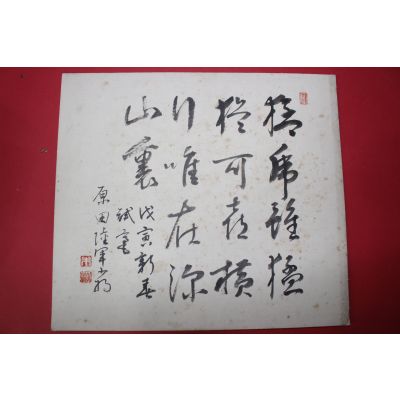 猛虎雖猛
猶可喜橫
行唯在深
山裏
戊寅新春
試毫
原田陸軍少将